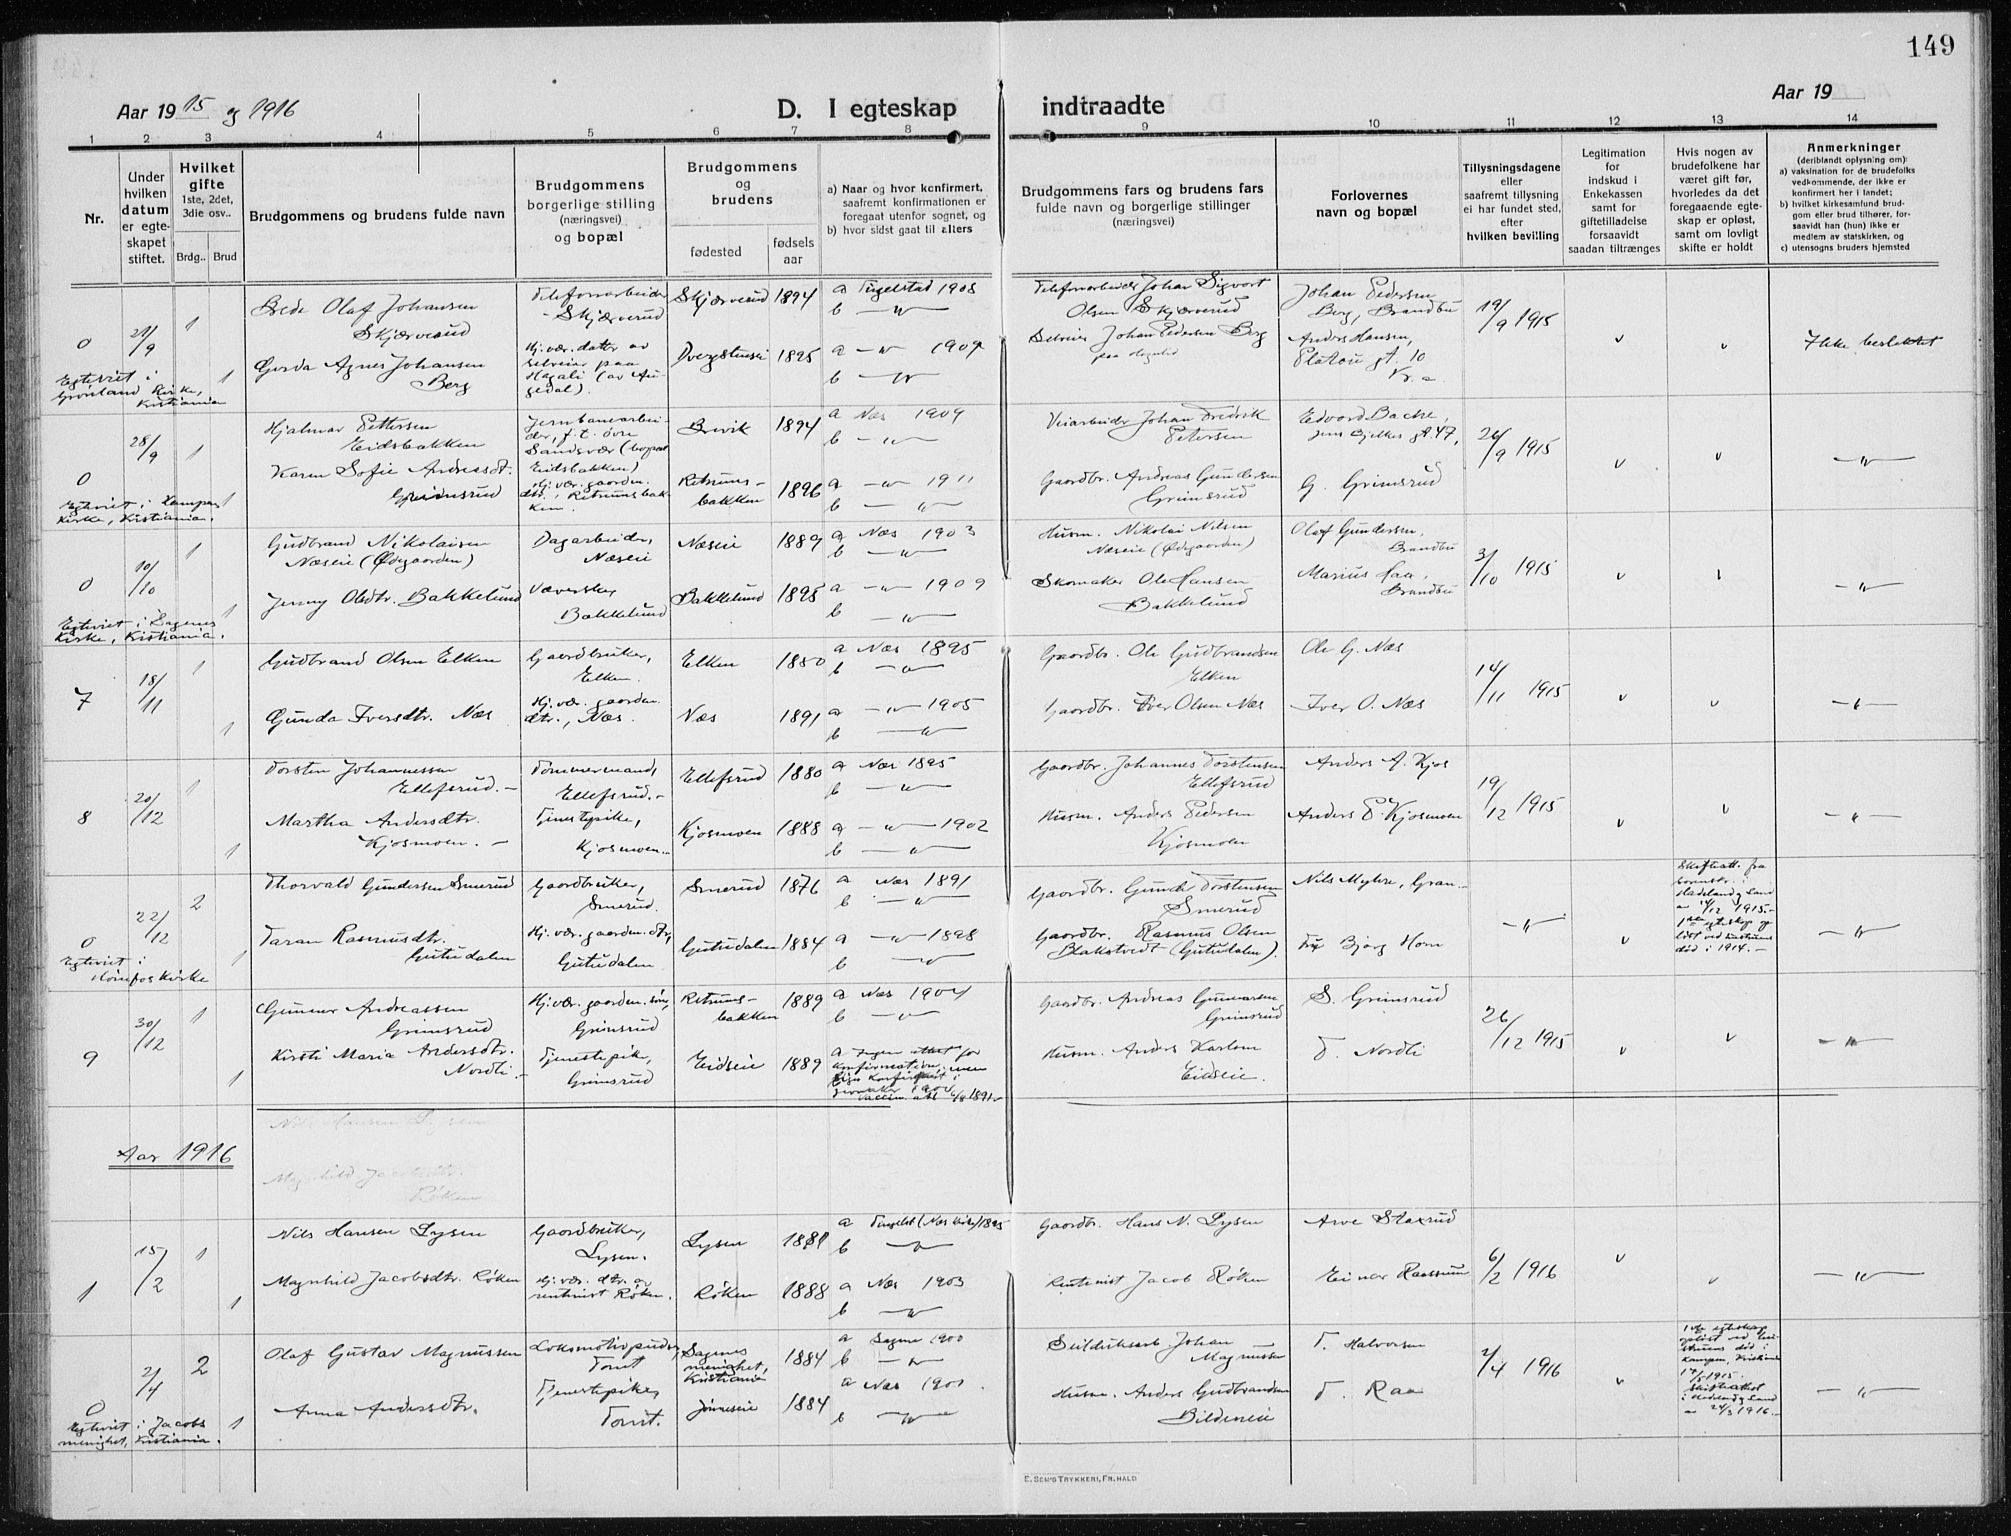 149
Aar 1915 og 1916
D. I egteskap indtraadte
Aar 19
1 2 3 4 5 6 7 8 9 10 11 12 13 14
Nr.
Under hvilken datum er egteskapet stiftet.
Hvilket gifte 1ste, 2det, 3die osv..
Brdg.. Brud
Brudgommens og brudens fulde navn
Brudgommens borgerlige stilling (næringsvei) og bopæl
Brudgommens og brudens
fødested
fødsels aar
a) Naar og hvor konfirmert, saafremt konfirmationen er foregaat utenfor sognet, og
b) hvor sidst gaat til alters
Brudgommens fars og brudens fars fulde navn og borgerlige stillinger (næringsvei)
Forlovernes navn og bopæl
Tillysningsdagene eller saafremt tillysning ei har fundet sted, efter hvilken bevilling
Legitimation for indskud i Enkekassen samt for giftetilladelse forsaavidt saadan tiltrænges
Hvis nogen av brudefolkene har været gift før, hvorledes da det foregaaende egteskap er opløst, samt om lovligt skifte er holdt
Anmerkninger (deriblandt oplysning om):
a) vaksination for de brudefolks vedkommende, der ikke er konfirmert her i landet;
b) hvilket kirkesamfund brudgom eller brud tilhører, forsaavidt han (hun) ikke er medlem av statskirken, og
c) utensogns bruders hjemsted
0
21/9
1
Brede Olaf Johansen Skjærverud
Telefonarbeider Skjærverud
Skjærverud
1894
a Tingelstad 1908
b —"—
Telefonarbeider Johan Sigvart Olsen Skjærverud
Johan Pedersen Berg, Brandbu
19/9 1915
v
v
Ikke beslektet
1
Gerda Agnes Johansen Berg
Hj. vær. datter av selveier paa Hagali
1895
a —"— 1909
b —"—
Selveier Johan Pedersen Berg
Anders Hansen, Platou gt. 10 Kr.a.
Egteviet i Grønland Kirke, Kristiania
0
28/9
1
Hjalmar Pettersen Eidsbakken
Jernbanearbeider, f.t. øvre Sandsvær (bopæl Eidsbakken)
Brevik
1894
a Næs 1909
b —"—
Veiarbeider Johan Fredrik Petersen
Edvard Bache, Jens Bjelkes gt. 47,
26/9 1915
v
v
—"—
1
Karen Sofie Andreasdt. Grimsrud
Hj. vær. gaardm. dtr., Retrumsbakken
Retrumsbakken
1896
a —"— 1911
b —"—
Gaardbr. Andreas Gundersen Grimsrud
G. Grimsrud
Egteviet i Kampen Kirke, Kristiania.
0
10/10
1
Gudbrand Nikolaisen Næseie (Ødegaarden)
Dagarbeider, Næseie
Næseie
1889
a Næs 1903
b —"—
Husm. Nikolai Nilsen Næseie (Ødegaarden)
Olaf Gundersen, Brandbu
3/10 1915
v
v
—"—
1
Jenny Olsdtr. Bakkelund
Væverske, Bakkelund
Bakkelund
1895
a —"— 1909
b —"—
Skomaker Ole Hansen Bakkelund
Marius Haa, Brandbu
Egteviet i Sagenes Kirke, Kristiania.
7
18/11
1
Gudbrand Olsen Elken
Gaardbruker, Elken.
Elken
1880
a Næs 1895
b —"—
Gaardbr. Ole Gudbrandsen Elken
Ole G. Næs
14/11 1915
v
v
—"—
1
Gunda Iversdtr. Næs
Hj. vær. gaardm. dtr., Næs.
Næs
1891
a —"— 1905
b —"—
Gaardbr. Iver Olsen Næs
Iver O. Næs
8
20/12
1
Torsten Johannessen Ellefsrud.
Tømmermand, Ellefsrud.
Ellefsrud
1880
a Næs 1895
b —"—
Gaardbr. Johannes Torstensen Ellefsrud
Anders A. Kjos
19/12 1915
v
v
—"—
1
Martha Andersdtr. Kjosmoen.
Tjenestepike, Kjosmoen.
Kjosmoen
1888
a —"— 1902
b —"—
Husm. Anders Pedersen Kjosmoen
Anders P. Kjosmoen
0
22/12
2
Thorvald Gundersen Smerud
Gaardbruker, Smerud.
Smerud
1876
a Næs 1891
b —"—
Gaardbr. Gunder Torstensen Smerud
Nils Myhre, Gran
—"—
v
Skifteatt. fra sorenskr. i Hadeland og Land 1915. 1ste egteskap opløst ved hustruens død i 1914.
—"—
1
Taran Rasmusdtr. Gutudalen
Hj. vær. gaardm. dtr, Gutudalen
Gutudalen
1884
a —"— 1898
b —"—
Gaardbr. Rasmus Olsen Blakstvedt (Gutudalen).
Bjørg Horn
Egteviet i Hønefos Kirke
9
30/12
1
Gunnar Andreassen Grimsrud
Hj. vær. gaardm. søn, Grimsrud
Retrumsbakken
1889
a Næs 1904
b —"—
Gaardbr. Andreas Gunnarsen Grimsrud
S. Grimsrud
26/12 1915
v
v
—"—
1
Kirsti Maria Andersdtr. Nordli
Tjenestepik, Grimsrud
Eidseie
1889
a Ingen attest for konfirmation, men
Husm. Anders Karlsen Eidseie.
T. Nordli
Aar 1916
Nils Hansen Lysen
Magnhild Jacobsdtr. Røken
1
15/2
1
Nils Hansen Lysen
Gaardbruker, Lysen.
Lysen
1881
a Tingelst (Næs kirke) 1895
b —"—
Gaardbr. Hans N. Lysen
Arve Staxrud
6/2 1916
v
v
—"—
1
Magnhild Jacobsdtr. Røken
Hj. vær. dtr. av rentenist Røken.
Røken
1888
a Næs 1903
b —"—
Rentenist Jacob Røken
Einar Raassum
0
2/4
2
Olaf Gustav Magnussen
Lokomotivpudser, Tomt
Sagenes menighet, Kristiania
1884
a Sagene 1900
b —"—
Johan Magnussen
T. Halvorsen
2/4 1916
v
1ste egteskap opløst ved hustruens død i Kampen, Kristiania 1915. Skifteattest i Hadeland og Land 24/3 1916.
—"—
1
Anna Andersdtr.
Tjenestepike, Tomt.
1884
a Næs 1901.
b —"—
Husm. Anders Gudbrandsen Bildeneie
T. Raa
Egteviet i Jacobs menighet, Kristiania.
E. SEM'S TRYKKERI, FR.HALD